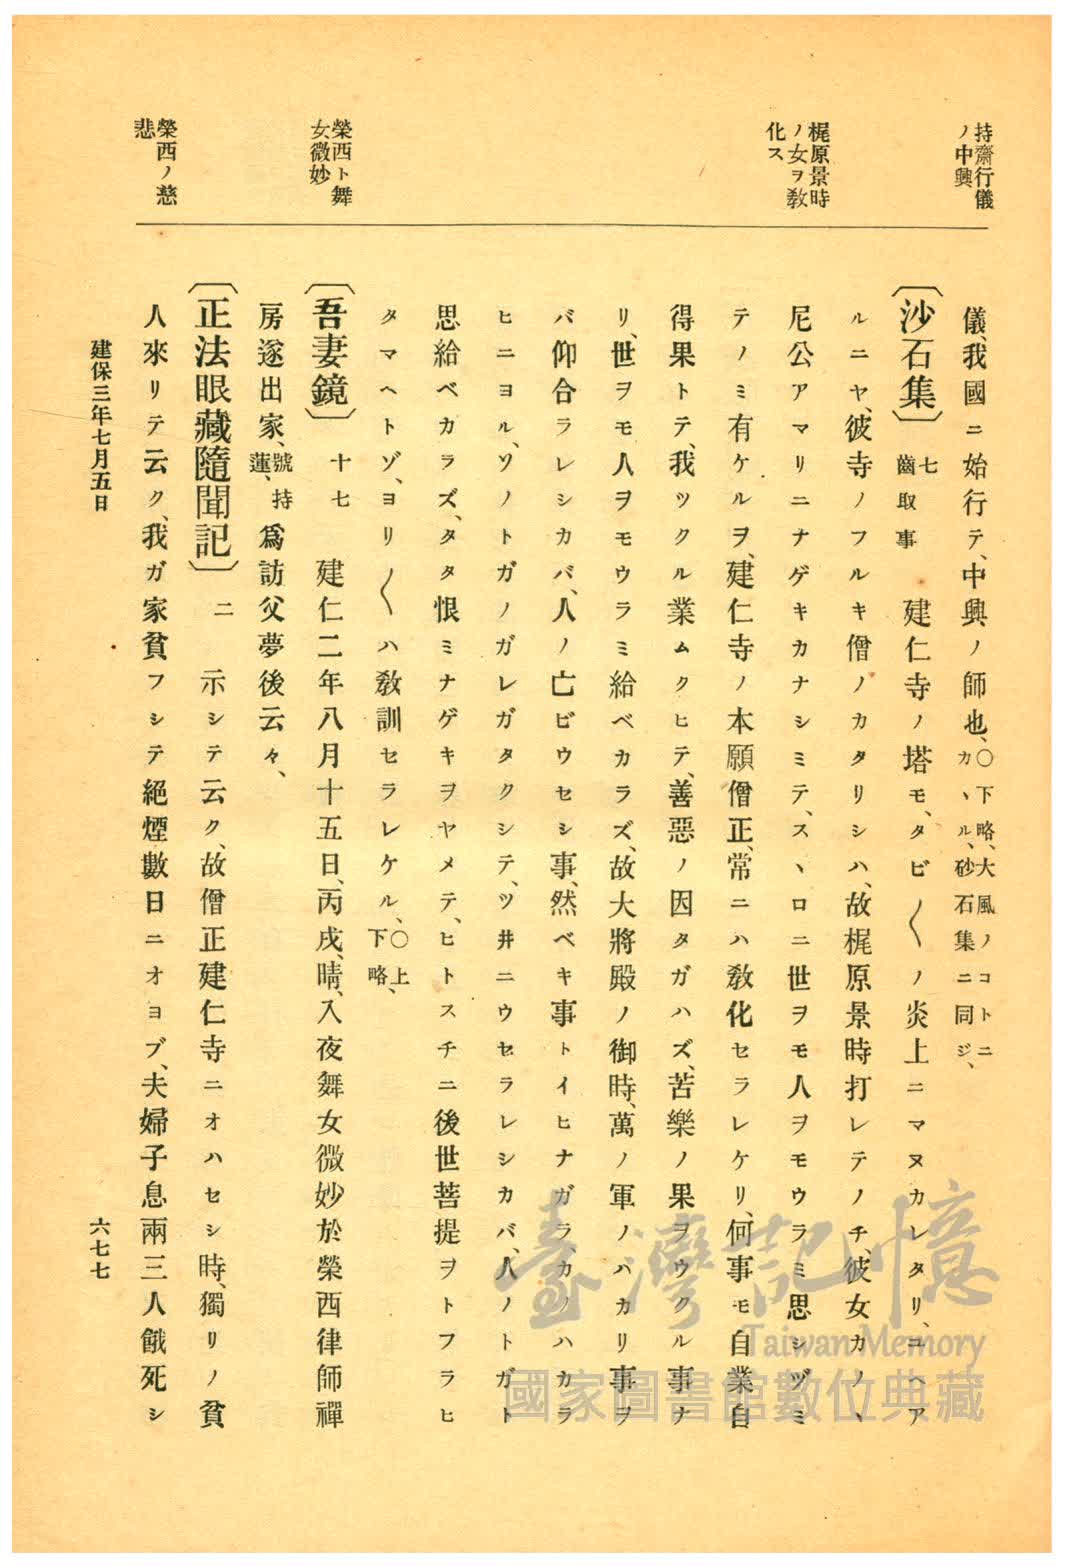 持齋行儀
ノ中興
梶原景時
ノ女ヲ教
化ス
榮西ト舞
女微妙
榮西ノ慈
悲
儀、我國ニ始行テ、中興ノ師也、〇下略、大風ノコトニカヽル、砂石集ニ同ジ、
〔沙石集〕七齒取事 建仁寺ノ塔モ、タビ〳〵ノ炎上ニマヌカレタリ、ユヘア
ルニヤ、彼寺ノフルキ僧ノカタリシハ、故梶原景時打レテノチ、彼女カノヽ
尼公アマリニナゲキカナシミテ、スヽロニ世ヲモ人ヲモウラミ思シヅミ
テノミ有ケルヲ、建仁寺ノ本願僧正、常ニハ教化セラレケリ、何事モ自業自
得果トテ、我ツクル業ムクヒテ、善惡ノ因タガハズ、苦樂ノ果ヲウクル事ナ
リ、世ヲモ人ヲモウラミ給ベカラズ、故大將殿ノ御時、萬ノ軍ノハカリ事ヲ
バ仰合ラレシカバ、人ノ亡ビウセシ事、然ベキ事トイヒナガラ、カノハカラ
ヒニヨル、ソノトガノガレガタクシテ、ツ井ニウセラレシカバ、人ノトガト
思給ベカラズ、タタ恨ミナゲキヲヤメテ、ヒトスチニ後世菩提ヲトフラヒ
タマヘトゾ、ヨリ〳〵ハ教訓セラレケル、〇上下略、
〔吾妻鏡〕十七 建仁二年八月十五日、丙戌、晴、入夜舞女微妙於榮西律師禪
房遂出家、號持蓮、爲訪父夢後云々、
〔正法眼藏隨聞記〕二 示シテ云ク、故僧正建仁寺ニオハセシ時、獨リノ貧
人來リテ云ク、我ガ家貧フシテ絕煙數日ニオヨブ、夫婦子息兩三人餓死シ
建保三年七月五日
六七七
臺灣記憶
Taiwan Memory
國家圖書館數位典藏